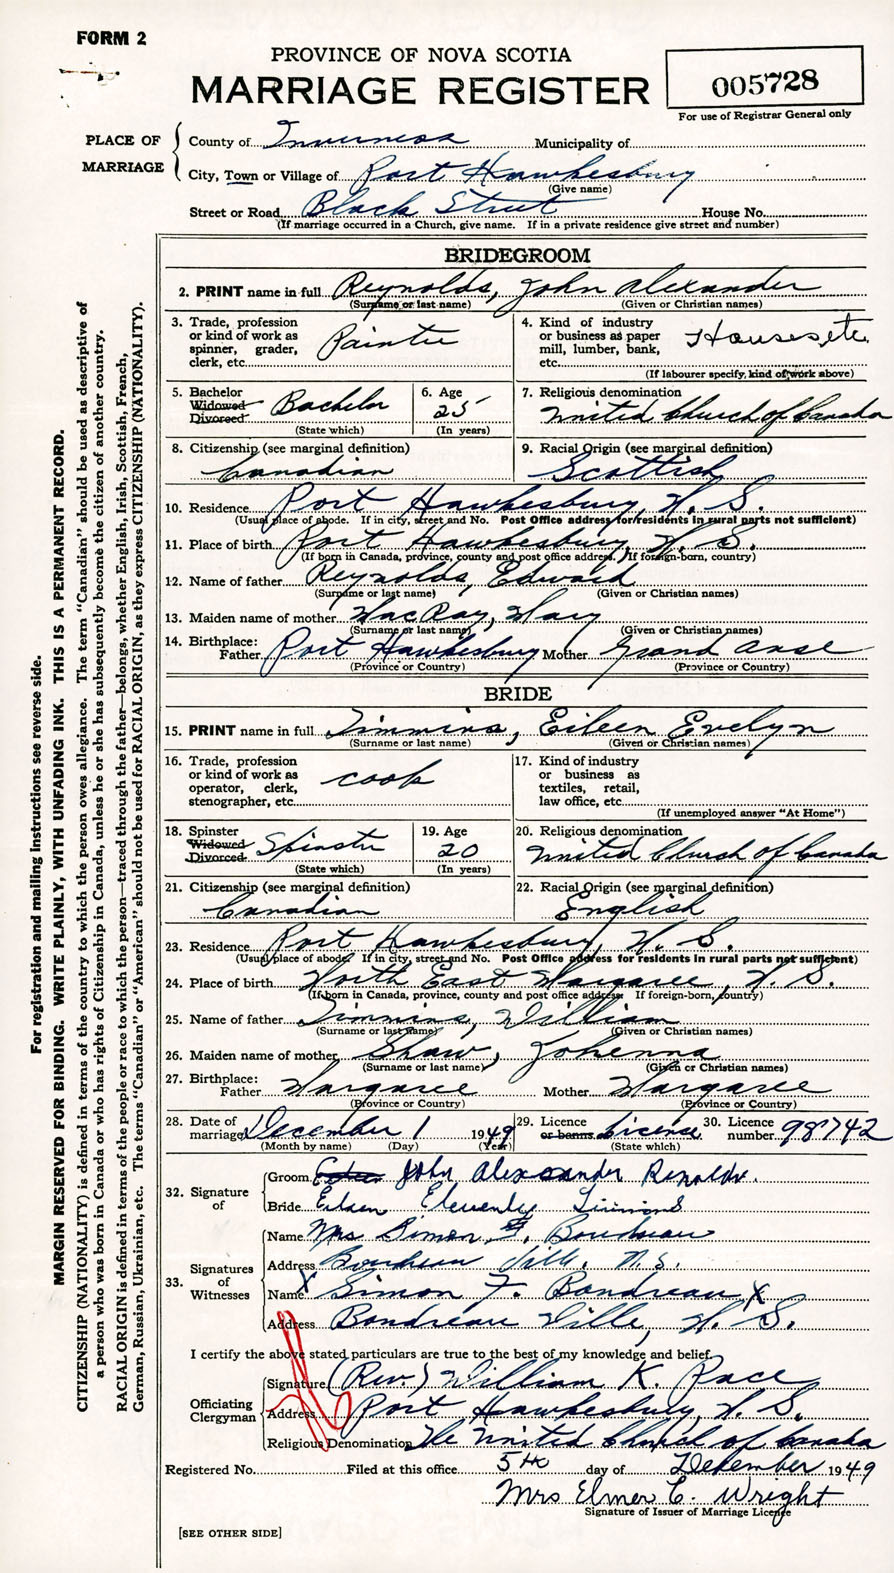 FORM 2
PROVINCE OF NOVA SCOTIA
MARRIAGE REGISTER
005728
For use of Registrar General only
PLACE OF MARRIAGE
County of Inverness Municipality of
City, Town or Village of Port Hawkesbury
(Give name)
Street or Road Black Street House No.
(If marriage occurred in a Church, give name. If in a private residence give street and number)
BRIDEGROOM
2. PRINT name in full Reynolds, John Alexander
(Surname or last name) (Given or Christian names)
3. Trade, profession or kind of work as spinner, grader, clerk, etc. Painter
4. Kind of industry or business as paper mill, lumber, bank, etc. Houses, etc.
(If labourer specify, kind of work above)
5. Bachelor Widowed Divorced Bachelor
(State which)
6. Age 25
(In years)
7. Religious denomination
United Church of Canada
8. Citizenship (see marginal definition)
Canadian
9. Racial Origin (see marginal definition)
Scottish
10. Residence Port Hawkesbury, N. S.
(Usual place of abode. If in city, street and No. Post Office address for residents in rural parts not sufficient)
11. Place of birth Port Hawkesbury, N. S.
(If born in Canada, province, county and post office address. If foreign-born, country)
12. Name of father Reynolds, Edward
(Surname or last name) (Given or Christian names)
13. Maiden name of mother MacRay, Mary
(Surname or last name) (Given or Christian names)
14. Birthplace:
Father Port Hawkesbury Mother Grand Anse
(Province or Country) (Province or Country)
BRIDE
15. PRINT name in full Timmins, Eileen Evelyn
(Surname or last name) (Given or Christian names)
16. Trade, profession or kind of work as operator, clerk, stenographer, etc. cook
17. Kind of industry or business as textiles, retail, law office, etc.
(If unemployed answer "At Home")
18. Spinster Widowed Divorced Spinster
(State which)
19. Age 20
(In years)
20. Religious denomination
United Church of Canada
21. Citizenship (see marginal definition)
Canadian
22. Racial Origin (see marginal definition)
English
23. Residence Port Hawkesbury, N. S.
(Usual place of abode. If in city, street and No. Post Office address for residents in rural parts not sufficient)
24. Place of birth North East Margaree, N. S.
(If born in Canada, province, county and post office address. If foreign-born, country)
25. Name of father Timmins, William
(Surname or last name) (Given or Christian names)
26. Maiden name of mother Shaw, Johenna
(Surname or last name) (Given or Christian names)
27. Birthplace:
Father Margaree Mother Margaree
(Province or Country) (Province or Country)
28. Date of marriage December 1 1949
(Month by name) (Day) (Year)
29. Licence or banns Licence
(State which)
30. Licence number 98742
32. Signature of
Groom John Alexander Renolds.
Bride Eileen Timmins
33. Signatures of Witnesses
Name Mrs Simon F. Boudreau
Address Boudreau Ville, N.S.
Name X Simon F. Boudreau X
Address Boudreau Ville, N. S.
I certify the above stated particulars are true to the best of my knowledge and belief.
Officiating Clergyman
Signature (Rev.) William K. Pace
Address Port Hawkesbury, N. S.
Religious Denomination The United Church of Canada
Registered No. Filed at this office 5th day of December 1949
Mrs Elmer C. Wright
Signature of Issuer of Marriage Licence
[SEE OTHER SIDE]
For registration and mailing instructions see reverse side.
MARGIN RESERVED FOR BINDING. WRITE PLAINLY, WITH UNFADING INK. THIS IS A PERMANENT RECORD.
CITIZENSHIP (NATIONALITY) is defined in terms of the country to which the person owes allegiance. The term "Canadian" should be used as descriptive of
a person who was born in Canada or who has rights of Citizenship in Canada, unless he or she has subsequently become the citizen of another country.
RACIAL ORIGIN is defined in terms of the people or race to which the person—traced through the father—belongs, whether English, Irish, Scottish, French,
German, Russian, Ukrainian, etc. The terms "Canadian" or "American" should not be used for RACIAL ORIGIN, as they express CITIZENSHIP (NATIONALITY).